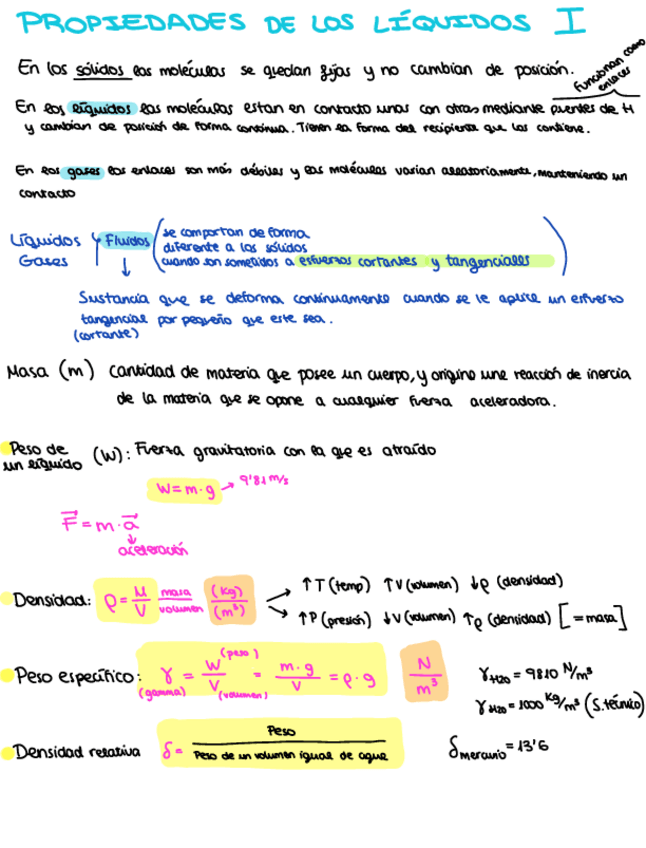 PROPIEDADES DE LOS LÍQUIDOS I
En los sólidos las moléculas se quedan fijas y no cambian de posición.
Funcionan como enlaces
En los líquidos las moléculas estan en contacto unas con otras mediante puentes de H
y cambian de posición de forma continua. Tienen la forma del recipiente que las contiene.
En los gases los enlaces son más débiles y las moléculas varian aleatoriamente, manteniendo un
contacto
Líquidos
Gases
Fluidos
se comportan de forma
diferente a los sólidos
cuando son sometidos a esfuerzos cortantes y tangenciales
Sustancia que se deforma continuamente cuando se le aplica un esfuerzo
tangencial por pequeño que este sea.
(cortante)
Masa (m) Cantidad de materia que posee un cuerpo, y origina una reacción de inercia
de la materia que se opone a cualquier fuerza aceleradora.
Peso de
un líquido (W): Fuerza gravitatoria con la que es atraído
W = m · g → 9'81 m/s
F⃗ = m · a⃗
↓
aceleración
Densidad: ρ = M/V masa/volumen (Kg)/(m³)
↑T (temp) ↑V (volumen) ↓ρ (densidad)
↑P (presión) ↓V (volumen) ↑ρ (densidad) [= masa]
Peso específico: γ (gamma) = W (peso)/V (volumen) = m · g/V = ρ · g N/m³
γ H2O = 9810 N/m³
γ H2O = 1000 Kg/m³ (S. técnico)
Densidad relativa δ = Peso/Peso de un volumen igual de agua
δ mercurio = 13'6